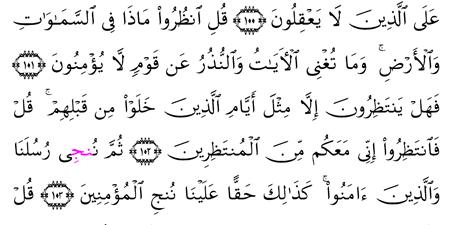 عَلَى ٱلَّذِينَ لَا يَعْقِلُونَ ﴿١٠٠﴾ قُلِ ٱنظُرُوا۟ مَاذَا فِى ٱلسَّمَـٰوَٰتِ
وَٱلْأَرْضِ ۚ وَمَا تُغْنِى ٱلْـَٔايَـٰتُ وَٱلنُّذُرُ عَن قَوْمٍ لَّا يُؤْمِنُونَ ﴿١٠١﴾
فَهَلْ يَنتَظِرُونَ إِلَّا مِثْلَ أَيَّامِ ٱلَّذِينَ خَلَوْا۟ مِن قَبْلِهِمْ ۚ قُلْ
فَٱنتَظِرُوٓا۟ إِنِّى مَعَكُم مِّنَ ٱلْمُنتَظِرِينَ ﴿١٠٢﴾ ثُمَّ نُنَجِّى رُسُلَنَا
وَٱلَّذِينَ ءَامَنُوا۟ ۚ كَذَٰلِكَ حَقًّا عَلَيْنَا نُنجِ ٱلْمُؤْمِنِينَ ﴿١٠٣﴾ قُلْ